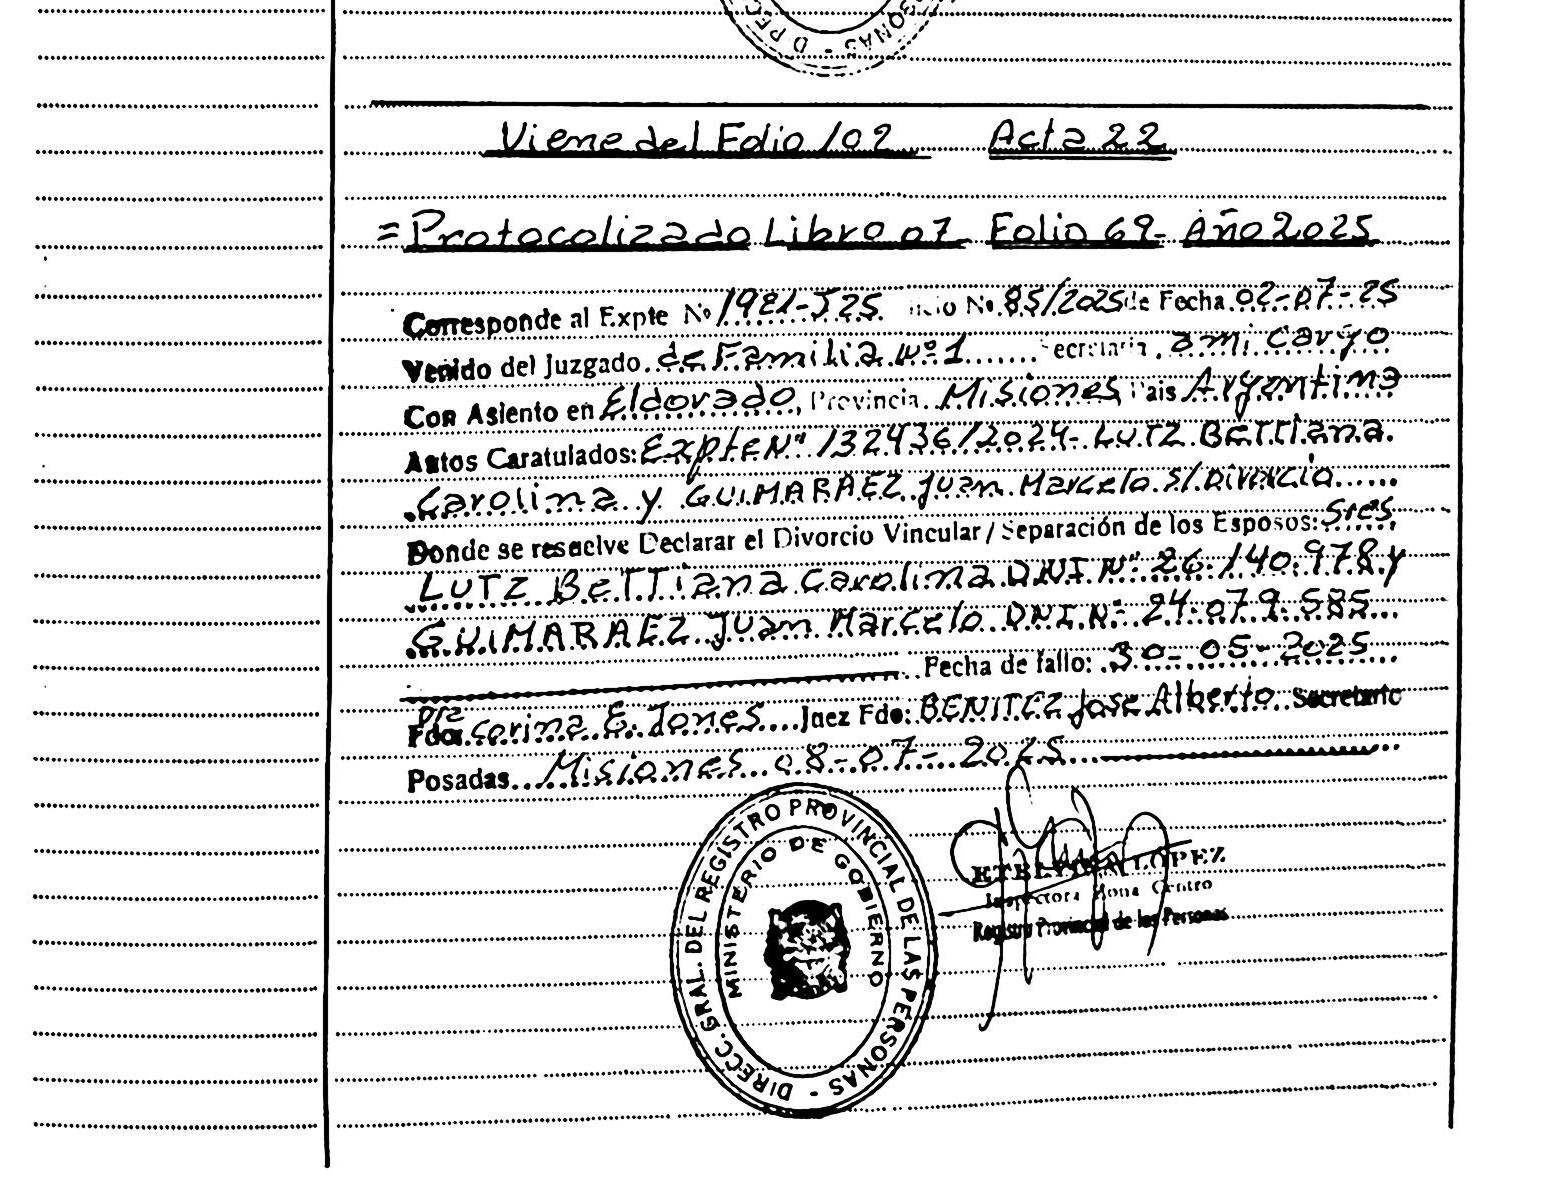 Viene del Folio 102 Acta 22
=Protocolizado Libro 07 Folio 69- Año 2025
Corresponde al Expte Nº 1981-J25 icio Nº 85/2025 de Fecha 02-07-25
Venido del Juzgado de Familia Nº 1 Secretaria a mi cargo
Con Asiento en Eldorado, Provincia Misiones Pais Argentina
Autos Caratulados: Expte Nº 132436/2024- LUTZ Bettiana
Carolina y GUIMARAEZ Juan Marcelo S/Divorcio
Donde se resuelve Declarar el Divorcio Vincular / Separación de los Esposos: Sres
LUTZ BeTTiana Carolina DNI Nº 26.140.978 y
GUIMARAEZ Juan Marcelo DNI Nº 24.079.585
Fecha de fallo: 30-05-2025
Fdo: Dra Corina E. Jones Juez Fdo: BENITEZ Jose Alberto Secretario
Posadas Misiones 08-07-2025
DIRECC. GRAL. DEL REGISTRO PROVINCIAL DE LAS PERSONAS -
MINISTERIO DE GOBIERNO
ETELVINA LOPEZ
Inspectora Zona Centro
Registro Provincial de las Personas